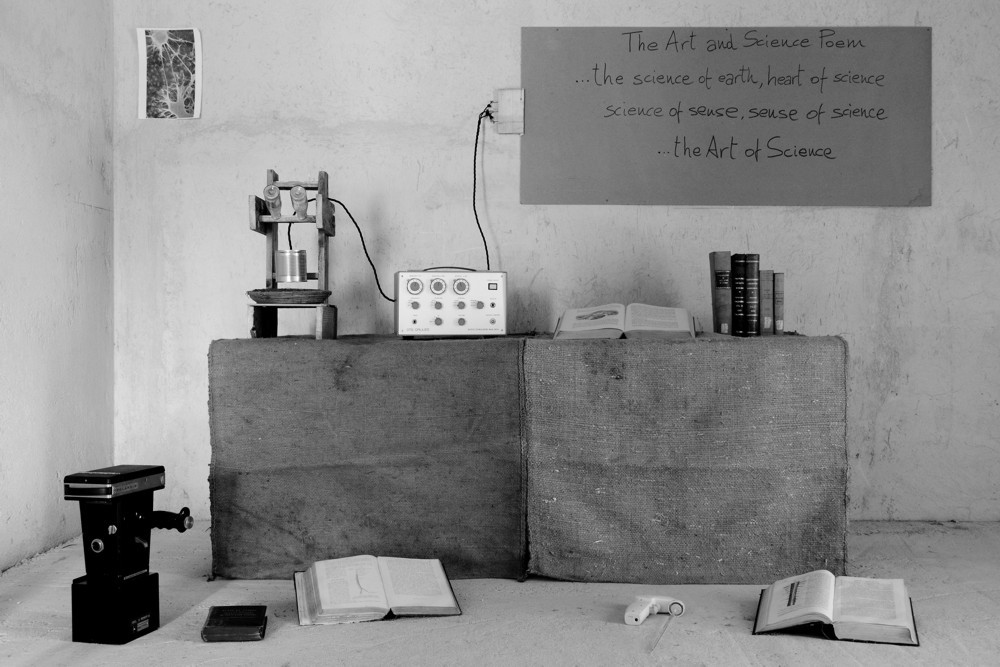 The Art and Science Poem
...the science of earth, heart of science
science of sense, sense of science
...the Art of Science